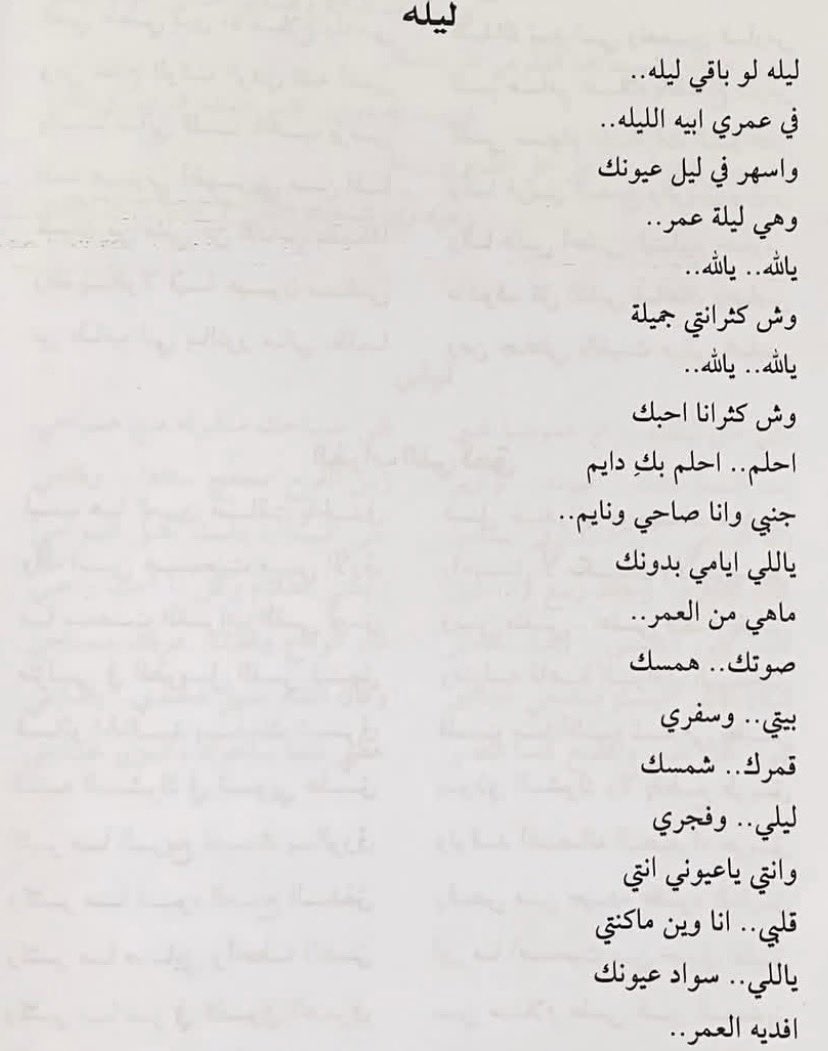 ليله
ليله لو باقي ليله..
في عمري ابيه الليله..
واسهر في ليل عيونك
وهي ليلة عمر..
يالله.. يالله..
وش كثرانتي جميلة
يالله.. يالله..
وش كثرانا احبك
احلم.. احلم بكِ دايم
جنبي وانا صاحي ونايم..
ياللي ايامي بدونك
ماهي من العمر..
صوتك.. همسك
بيتي.. وسفري
قمرك.. شمسك
ليلي.. وفجري
وانتي ياعيوني انتي
قلبي.. انا وين ماكنتي
ياللي.. سواد عيونك
افديه العمر..